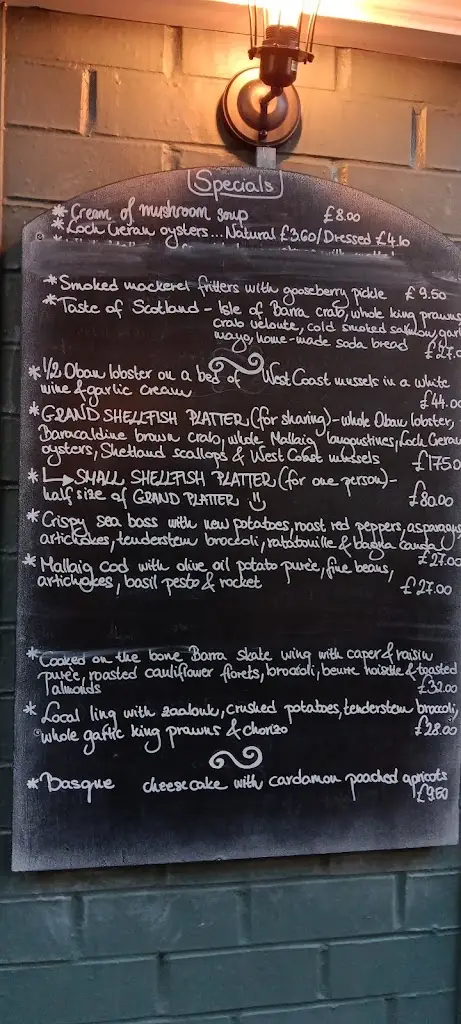 Specials
*Cream of mushroom soup £8.00
*Loch Creran oysters... Natural £3.60/Dressed £4.10
*Smoked mackerel fritters with gooseberry pickle £9.50
*Taste of Scotland - Isle of Barra crab, whole king prawns
crab veloute, cold smoked salmon, garl
mayo, home-made soda bread £27.0
*1/2 Oban lobster on a bed of West Coast mussels in a white
wine & garlic cream £44.00
*GRAND SHELLFISH PLATTER (for sharing) - whole Oban lobster,
Baracaldine brown crab, whole Mallaig langoustines, Loch Creran
oysters, Shetland scallops & West Coast mussels £175.0
*↳SMALL SHELLFISH PLATTER (for one person) -
half size of GRAND PLATTER :) £80.00
*Crispy sea bass with new potatoes, roast red peppers, asparagus
artichokes, tenderstem broccoli, ratatouille & bagna cauda £27.00
*Mallaig cod with olive oil potato purée, fine beans,
artichokes, basil pesto & rocket £27.00
*Cooked on the bone Barra skate wing with caper & raisin
purée, roasted cauliflower florets, broccoli, beurre noisette & toasted
almonds £32.00
*Local ling with zaalouk, crushed potatoes, tenderstem broccoli,
whole garlic king prawns & chorizo £28.00
*Basque cheesecake with cardamon poached apricots
£9.50